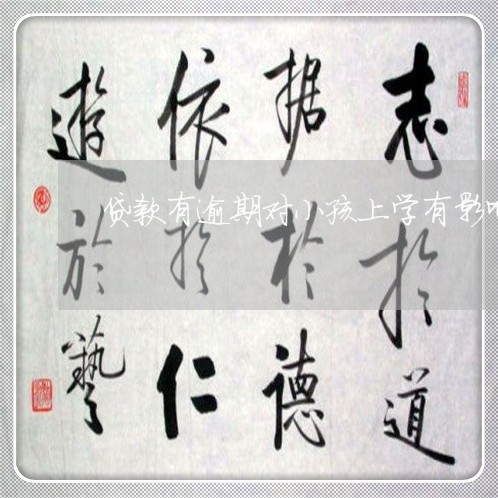 志於道
据於德
依於仁
遊於藝
贷款有逾期对小孩上学有影